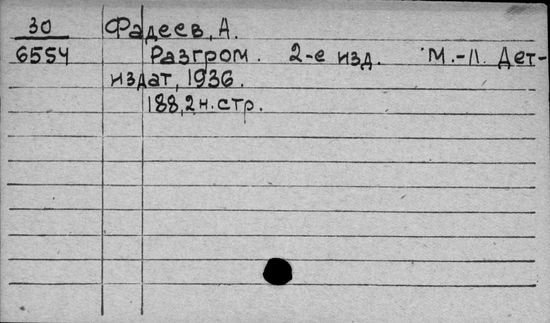 30 Фадеев, А.
6554 Разгром. 2-е изд. М.-Л. Дет-
издат, 1936.
188, 2 н. стр.